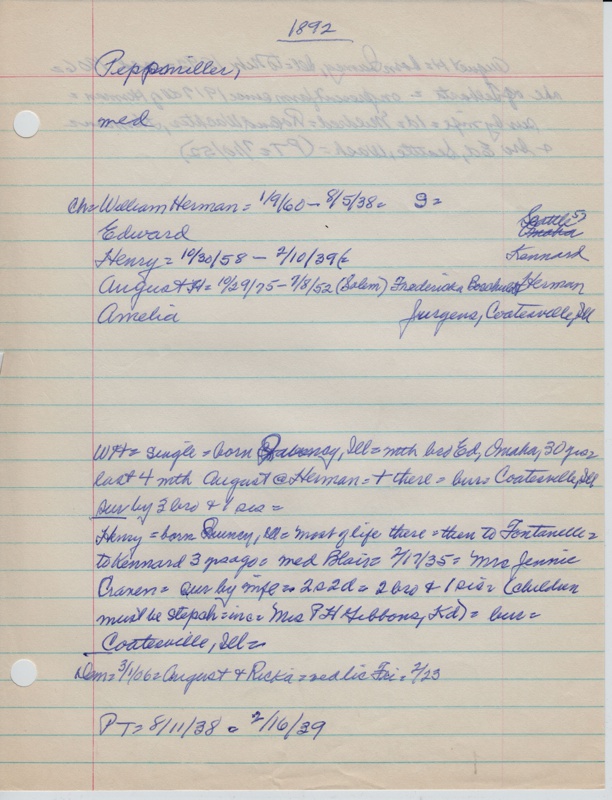 1892
Peppmiller,
med
Ch= William Herman = 1/9/60 - 8/5/38= S=
Edward Seattle 52 Omaha
Henry = 10/30/58 - 2/10/39 ( Kennard
August H= 10/29/75 - 7/8/52 (Salem) Fredericka Herman
Amelia Jurgens, Coatesville, Ill
WH= single = born Quincy, Ill = with bro Ed, Omaha, 30 yrs=
last 4 mth August @ Herman = + there = bur= Coatesville, Ill
sur by 3 bro & 1 sis =
Henry = born Quincy, Ill = most of life there = then to Fontanelle =
to Kennard 3 yrs ago = med Blair = 2/17/35 = Mrs Jennie
Craven = sur by wife = 2s2d = 2 bro & 1 sis = (children
must be stepch = inc = Mrs P H Gibbons, Kd) = bur =
Coatesville, Ill =
Dem= 3/1/06 = August & Ricka = med lic Fri = 2/23
PT= 8/11/38 = 2/16/39